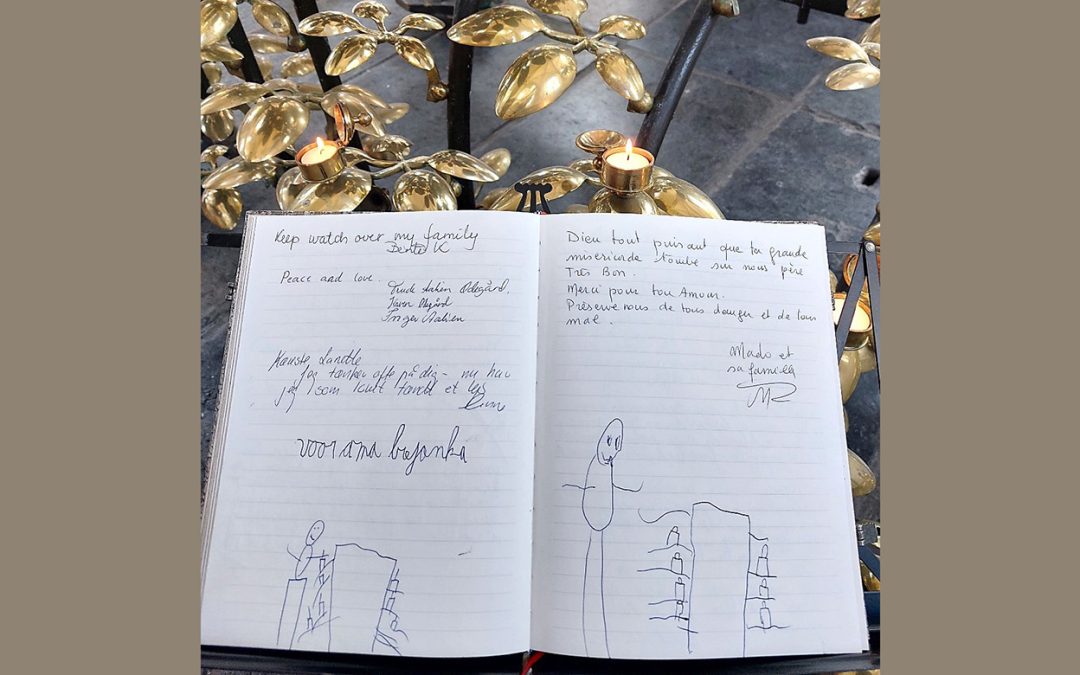 Keep watch over my family
Bente K
Peace and love.
Trude
Karen
Inger
Kæreste
Jeg tænker ofte på dig - nu har
jeg som tændt et lys
voor ama bojanka
Dieu tout puisant que ta grande
misericorde tombe sur nous père
Très Bon.
Merci pour ton Amour.
Préserve nous de tous danger et de tous
mal.
Mado et
sa famille